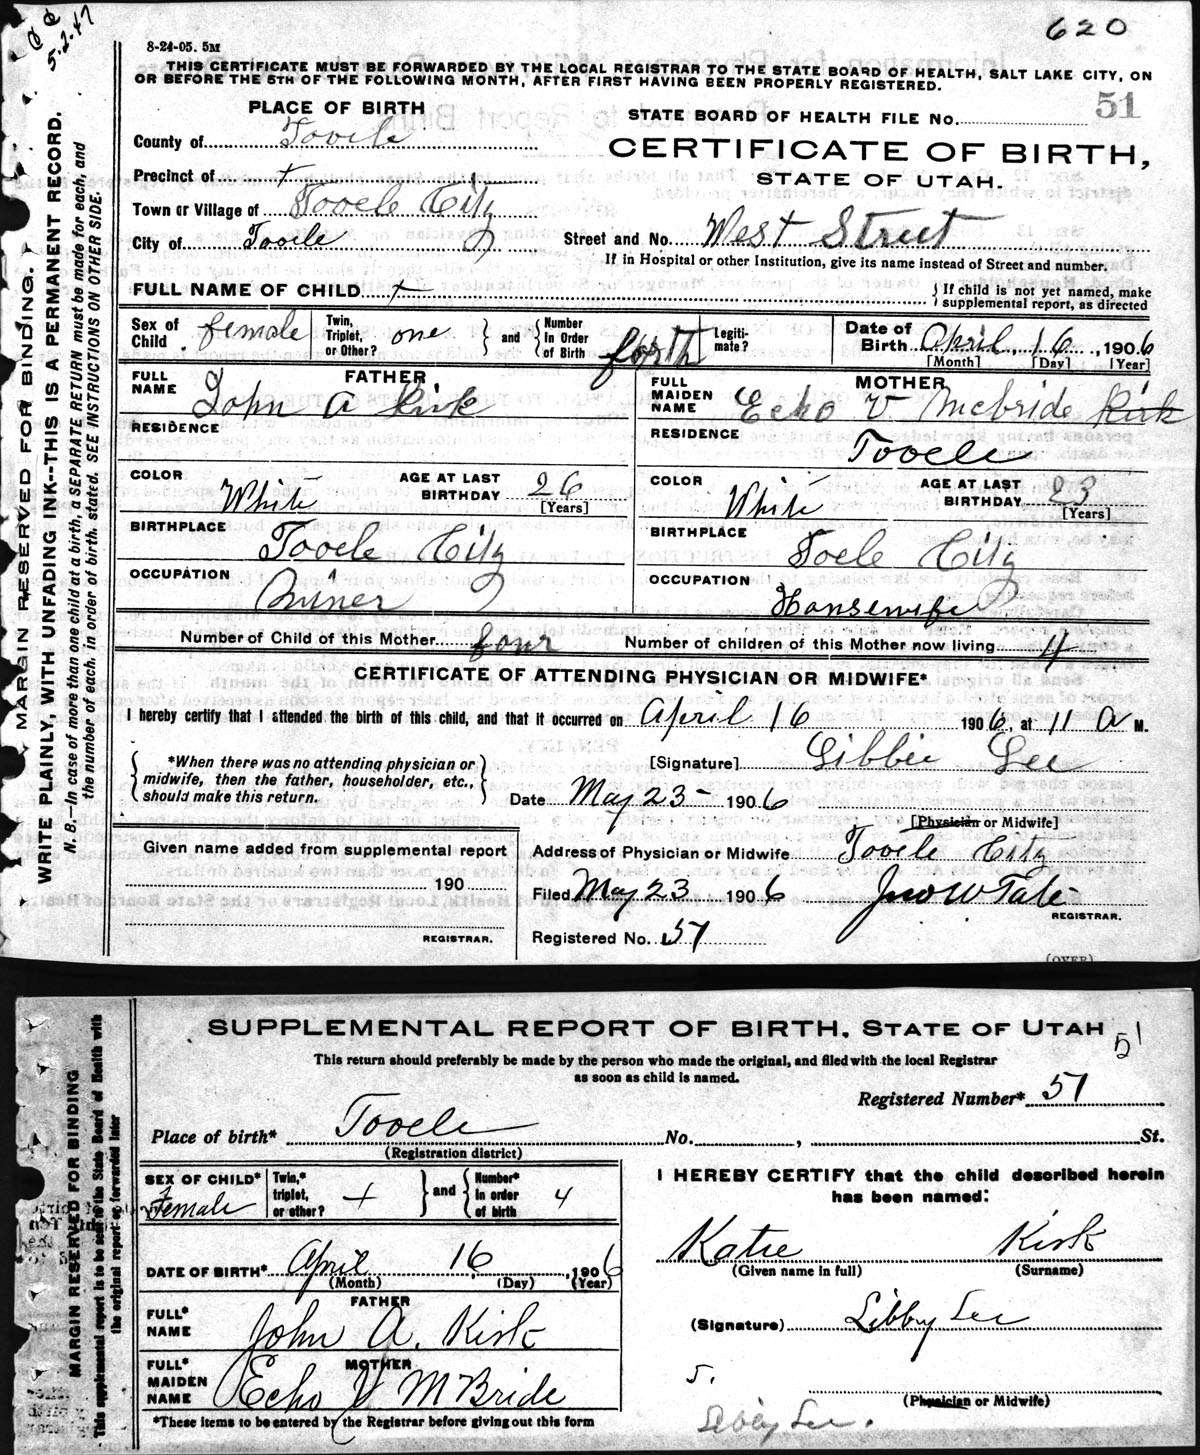 620
5.2.47
8-24-05. 5M
THIS CERTIFICATE MUST BE FORWARDED BY THE LOCAL REGISTRAR TO THE STATE BOARD OF HEALTH, SALT LAKE CITY, ON
OR BEFORE THE 5TH OF THE FOLLOWING MONTH, AFTER FIRST HAVING BEEN PROPERLY REGISTERED.
PLACE OF BIRTH
STATE BOARD OF HEALTH FILE No. 51
County of Tooele
CERTIFICATE OF BIRTH,
Precinct of +
STATE OF UTAH.
Town or Village of Tooele City
City of Tooele
Street and No. West Street
If in Hospital or other Institution, give its name instead of Street and number.
FULL NAME OF CHILD +
{If child is not yet named, make
supplemental report, as directed
Sex of Child female
Twin, Triplet, or Other? one
and
Number in Order of Birth forth
Legitimate?
Date of Birth April, 16, 1906
[Month] [Day] [Year]
FATHER
FULL NAME John A Kirk
MOTHER
FULL MAIDEN NAME Echo V Mcbride Kirk
RESIDENCE
RESIDENCE Tooele
COLOR White
AGE AT LAST BIRTHDAY 26
[Years]
COLOR White
AGE AT LAST BIRTHDAY 23
[Years]
BIRTHPLACE Tooele City
BIRTHPLACE Toele City
OCCUPATION Miner
OCCUPATION Housewife
Number of Child of this Mother four
Number of children of this Mother now living 4
CERTIFICATE OF ATTENDING PHYSICIAN OR MIDWIFE*
I hereby certify that I attended the birth of this child, and that it occurred on April 16 1906, at 11 a M.
{*When there was no attending physician or
midwife, then the father, householder, etc.,
should make this return.}
[Signature] Libbie Lee
Date May 23 - 1906
[Physician or Midwife]
Given name added from supplemental report
190
REGISTRAR.
Address of Physician or Midwife Tooele City
Filed May 23 1906 Jno W Tate
REGISTRAR.
Registered No. 51
(OVER)
MARGIN RESERVED FOR BINDING.
WRITE PLAINLY, WITH UNFADING INK--THIS IS A PERMANENT RECORD.
N. B.—In case of more than one child at a birth, a SEPARATE RETURN must be made for each, and
the number of each, in order of birth, stated. SEE INSTRUCTIONS ON OTHER SIDE.
SUPPLEMENTAL REPORT OF BIRTH, STATE OF UTAH 51
This return should preferably be made by the person who made the original, and filed with the local Registrar
as soon as child is named.
Registered Number* 51
Place of birth* Tooele No. , St.
(Registration district)
SEX OF CHILD* Female
Twin,* triplet, or other? +
and
Number* in order of birth 4
I HEREBY CERTIFY that the child described herein
has been named:
DATE OF BIRTH* April 16, 1906
(Month) (Day) (Year)
Katie Kirk
(Given name in full) (Surname)
FATHER
FULL* NAME John A. Kirk
(Signature) Libby Lee
MOTHER
FULL* MAIDEN NAME Echo V McBride
5.
(Physician or Midwife)
Libby Lee.
*These items to be entered by the Registrar before giving out this form
MARGIN RESERVED FOR BINDING
This supplemental report is to be sent to the State Board of Health with
the original report or forwarded later